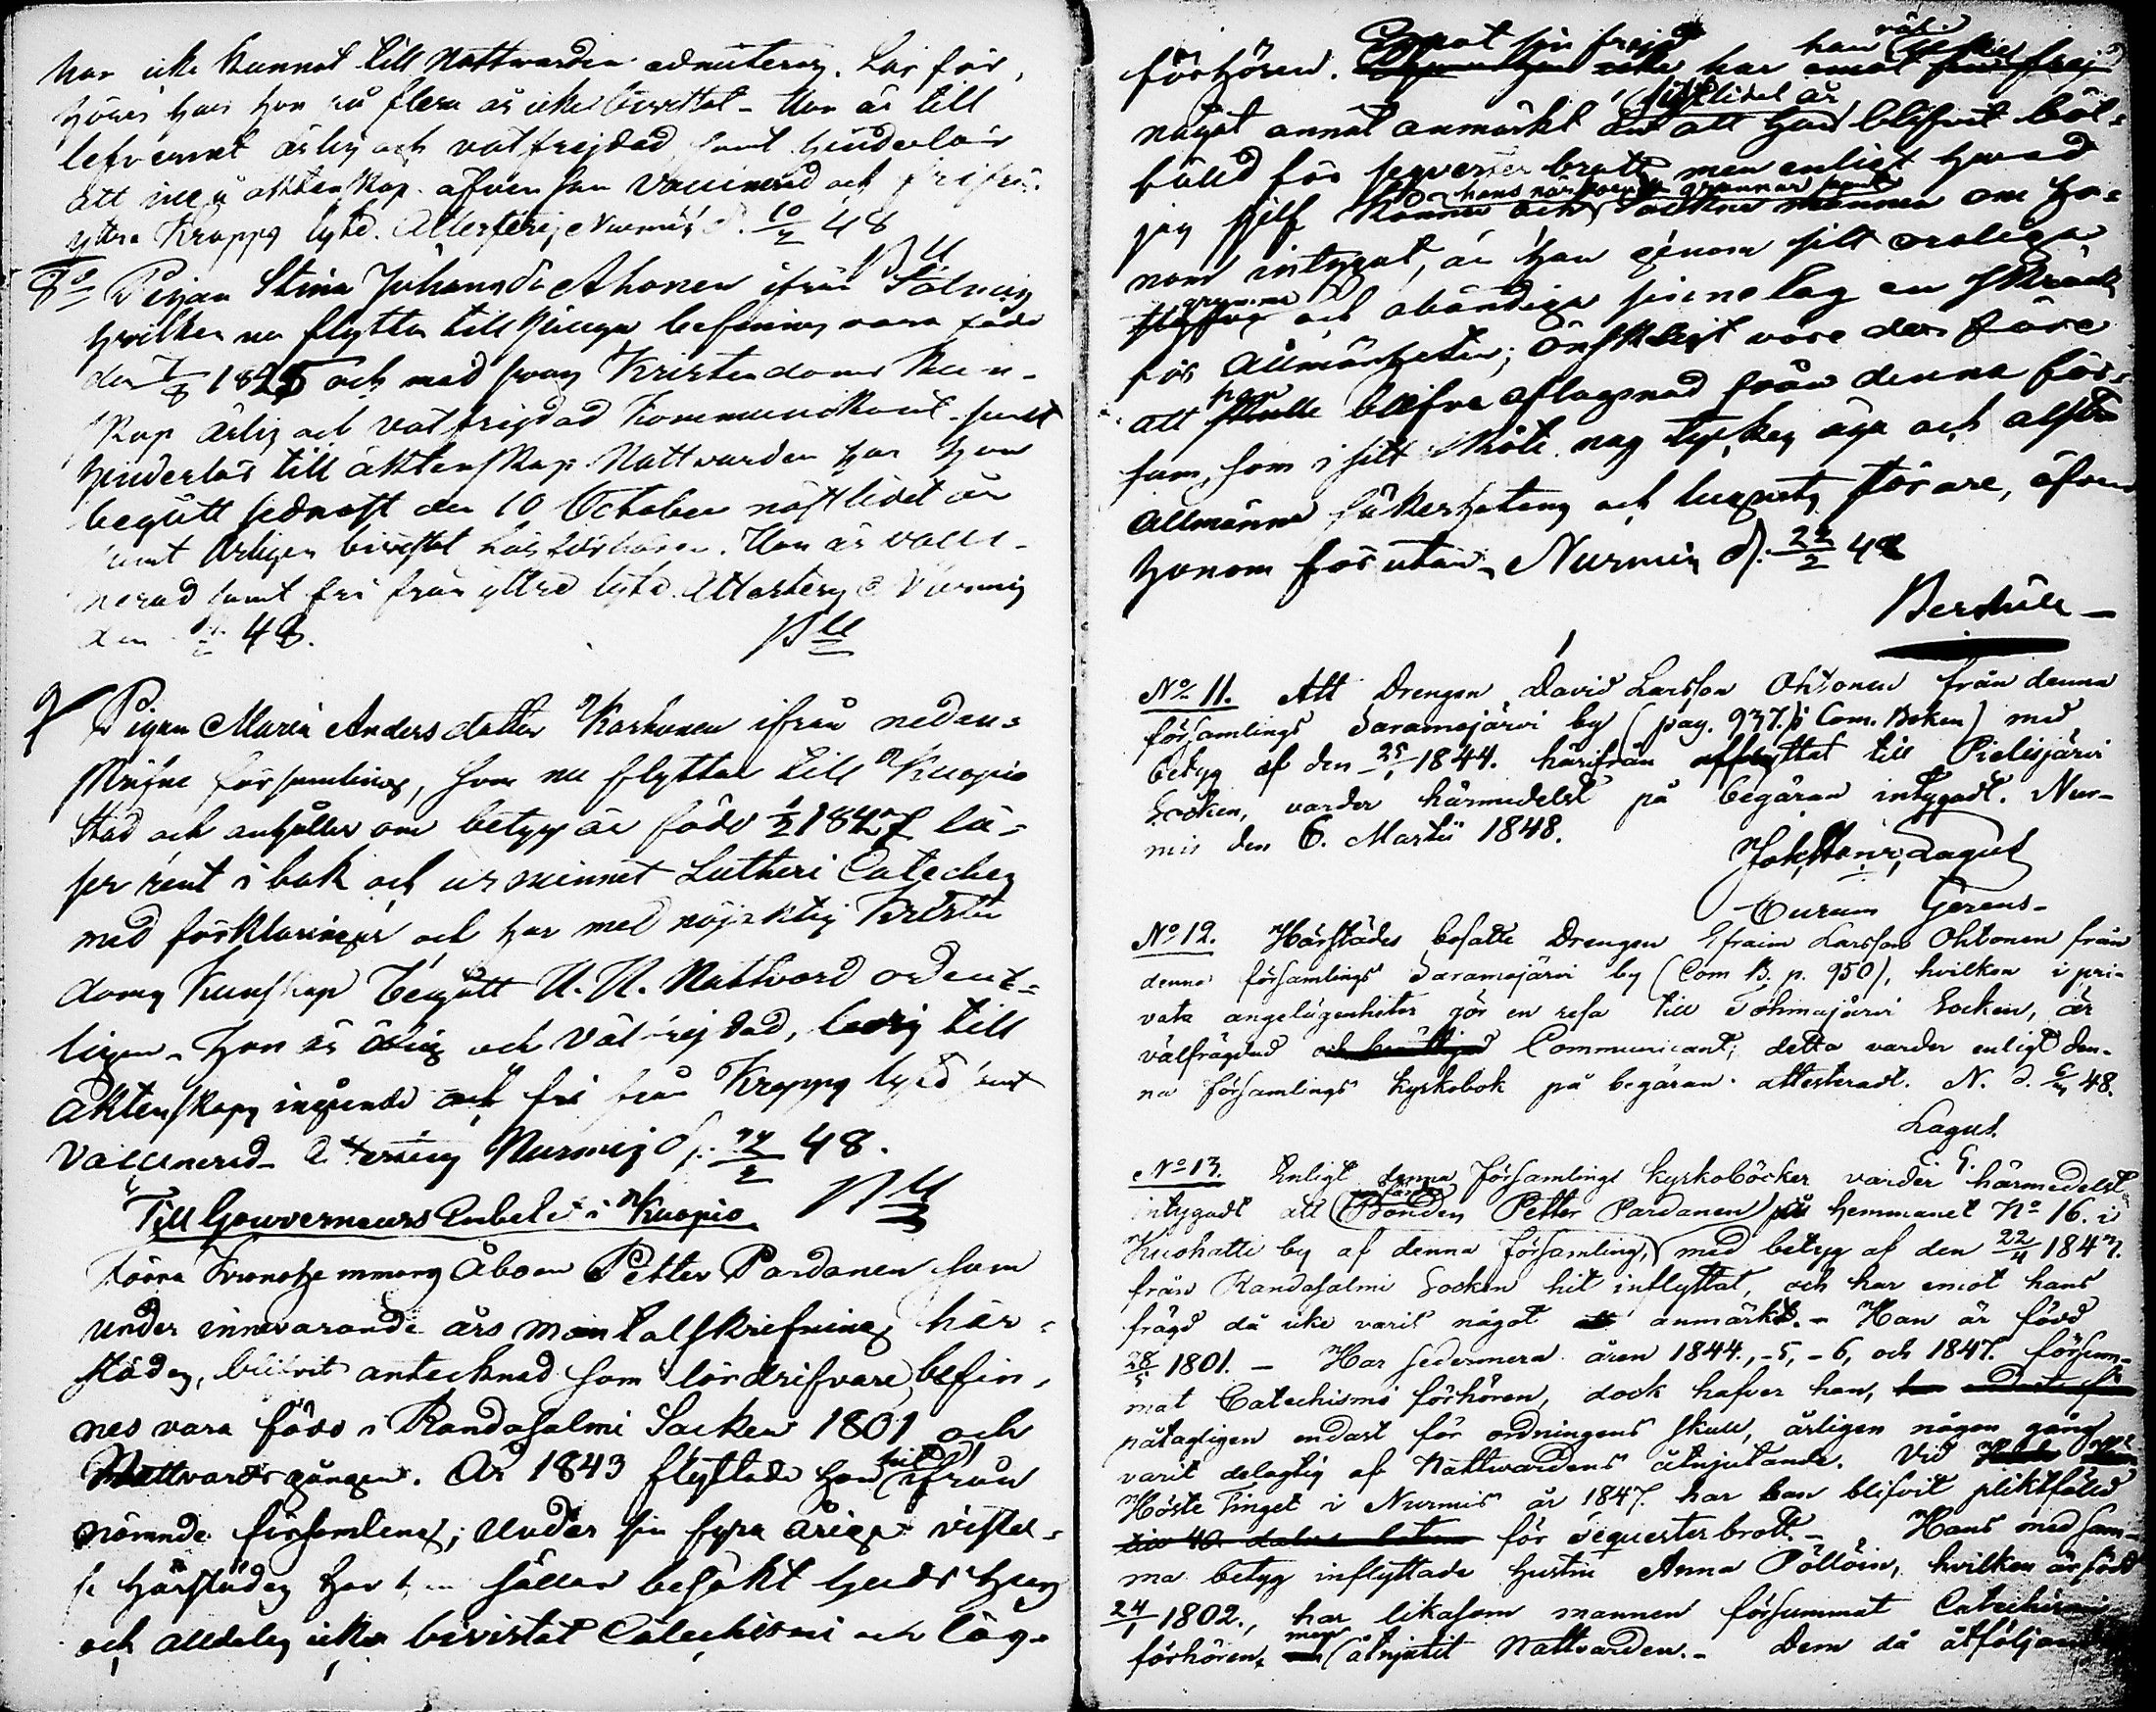 har icke kunnat till Nattvarden admitteras. Läs för,
hören har hon på flera år icke bivistat - Hon är till
lefvernet ärlig och välfrejdad samt hinderlös
att ingå äktenskap äfven som vaccinerad och fri från
yttre kropps lyte. Attesterij Nurmis d. 10/2 48
8o Pigan Stina Johansdr Ahonen ifrån
hvilken nu flyttar till befinnes vara född
den 1825 och med svag Kristendoms kun-
skap ärlig och välfrejdad Kommunikant samt
hinderlös till äktenskap. Nattvarden har hon
begått sednast den 10 October nästlidet år
samt årligen bivistat Läsförhören. Hon är vacci-
nerad samt fri från yttre lyte. Attesterij Nurmis
den 48.
9 Pigan Maria Andersdotter Karhunen ifrån nedan-
skrifne församling, som nu flyttar till Kuopio
stad och anhåller om betyg är född 1/2 1827 lä-
ser rent i bok och ur minnet Lutheri Cateches
med förklaringar och har med nöjaktig Kristen
doms kunskap begått H. H. Nattvard ordent-
ligen - Hon är ärlig och välfrejdad, ledig till
äktenskaps ingående och fri från Kropps lyte samt
Vaccinerad - Nurmis d. 48.
Till Gouverneurs Embetet i Kuopio
Förra Kronohemmans Åboen Petter Pardanen som
under innevarande års mantalskrifning här-
städes, blifvit antecknad som lösdrifvare, befin-
nes vara född i Randasalmi Socken 1801 och
Nattvardsgången. År 1843 flyttade han hit ifrån
nämnde församling; Under sin fyra åriga vistel-
se härstädes har han sällan besökt Guds hus
och alldeles icke bivistat Catechismi och läs-
förhören. Emot sin frejd har han
något annat anmärkt än att han sistlidet år blifvit böt-
fälld för sequester brott, men enligt hvad
jag sjelf känner och hans närboende grannar samt Sockne männen om ho-
nom intygat, är han genom sitt oroliga
grymma och obändiga sinnelag en skräck
för Allmänheten; önskligt vore derföre
att han blefve aflägsnad från denna för-
sam, som i sitt sköte nog tycks äga och alstra
Allmänna säkerhetens och lugnets störare, äfven
honom förutan - Nurmis d. 22/2 48
No 11. Att Drengen David Larsson Ohtonen från denna
församlings Saramojärvi by (pag. 937. i Com. Boken) med
betyg af den 25/1 1844. härifrån afflyttat till Pielisjärvi
Socken, varder härmedelst på begäran intygadt. Nur-
mis den 6. Martii 1848.
Joh. Henr. Lagus
Curam Gerens.
No 12. Härstädes bosatte Drengen Efraim Larsson Ohtonen från
denna församlings Saramojärvi by (Com B. p. 950), hvilken i pri-
vata angelägenheter gör en resa till Tohmajärvi Socken, är
välfrägdad Communicant; detta varder enligt den-
na församlings kyrkobok på begäran attesteradt. N. d. 6/3 48.
Lagus.
C. G.
No 13. Enligt denna församlings kyrkoböcker varder härmedelst
intygadt att Bonden Petter Pardanen på hemmanet No 16. i
Kuohatti by af denna församling, med betyg af den 22/11 1847.
från Randasalmi Socken hit inflyttat, och har emot hans
frägd då icke varit något anmärkt. - Han är född
28/5 1801. - Har sedermera åren 1844., -5, -6, och 1847. försum-
mat Catechismi förhören, dock hafver han,
påtagligen endast för ordningens skull, årligen någon gång
varit delagtig af Nattvardens åtnjutande. Vid
Höste Tinget i Nurmis år 1847. har han blifvit pliktfäld
för sequesterbrott. - Hans med sam-
ma betyg inflyttade hustru Anna Pöllöin, hvilken är född
24/1 1802., har likasom mannen försummat Catechismi
förhören, men åtnjutit Nattvarden. - Dem då åtföljande